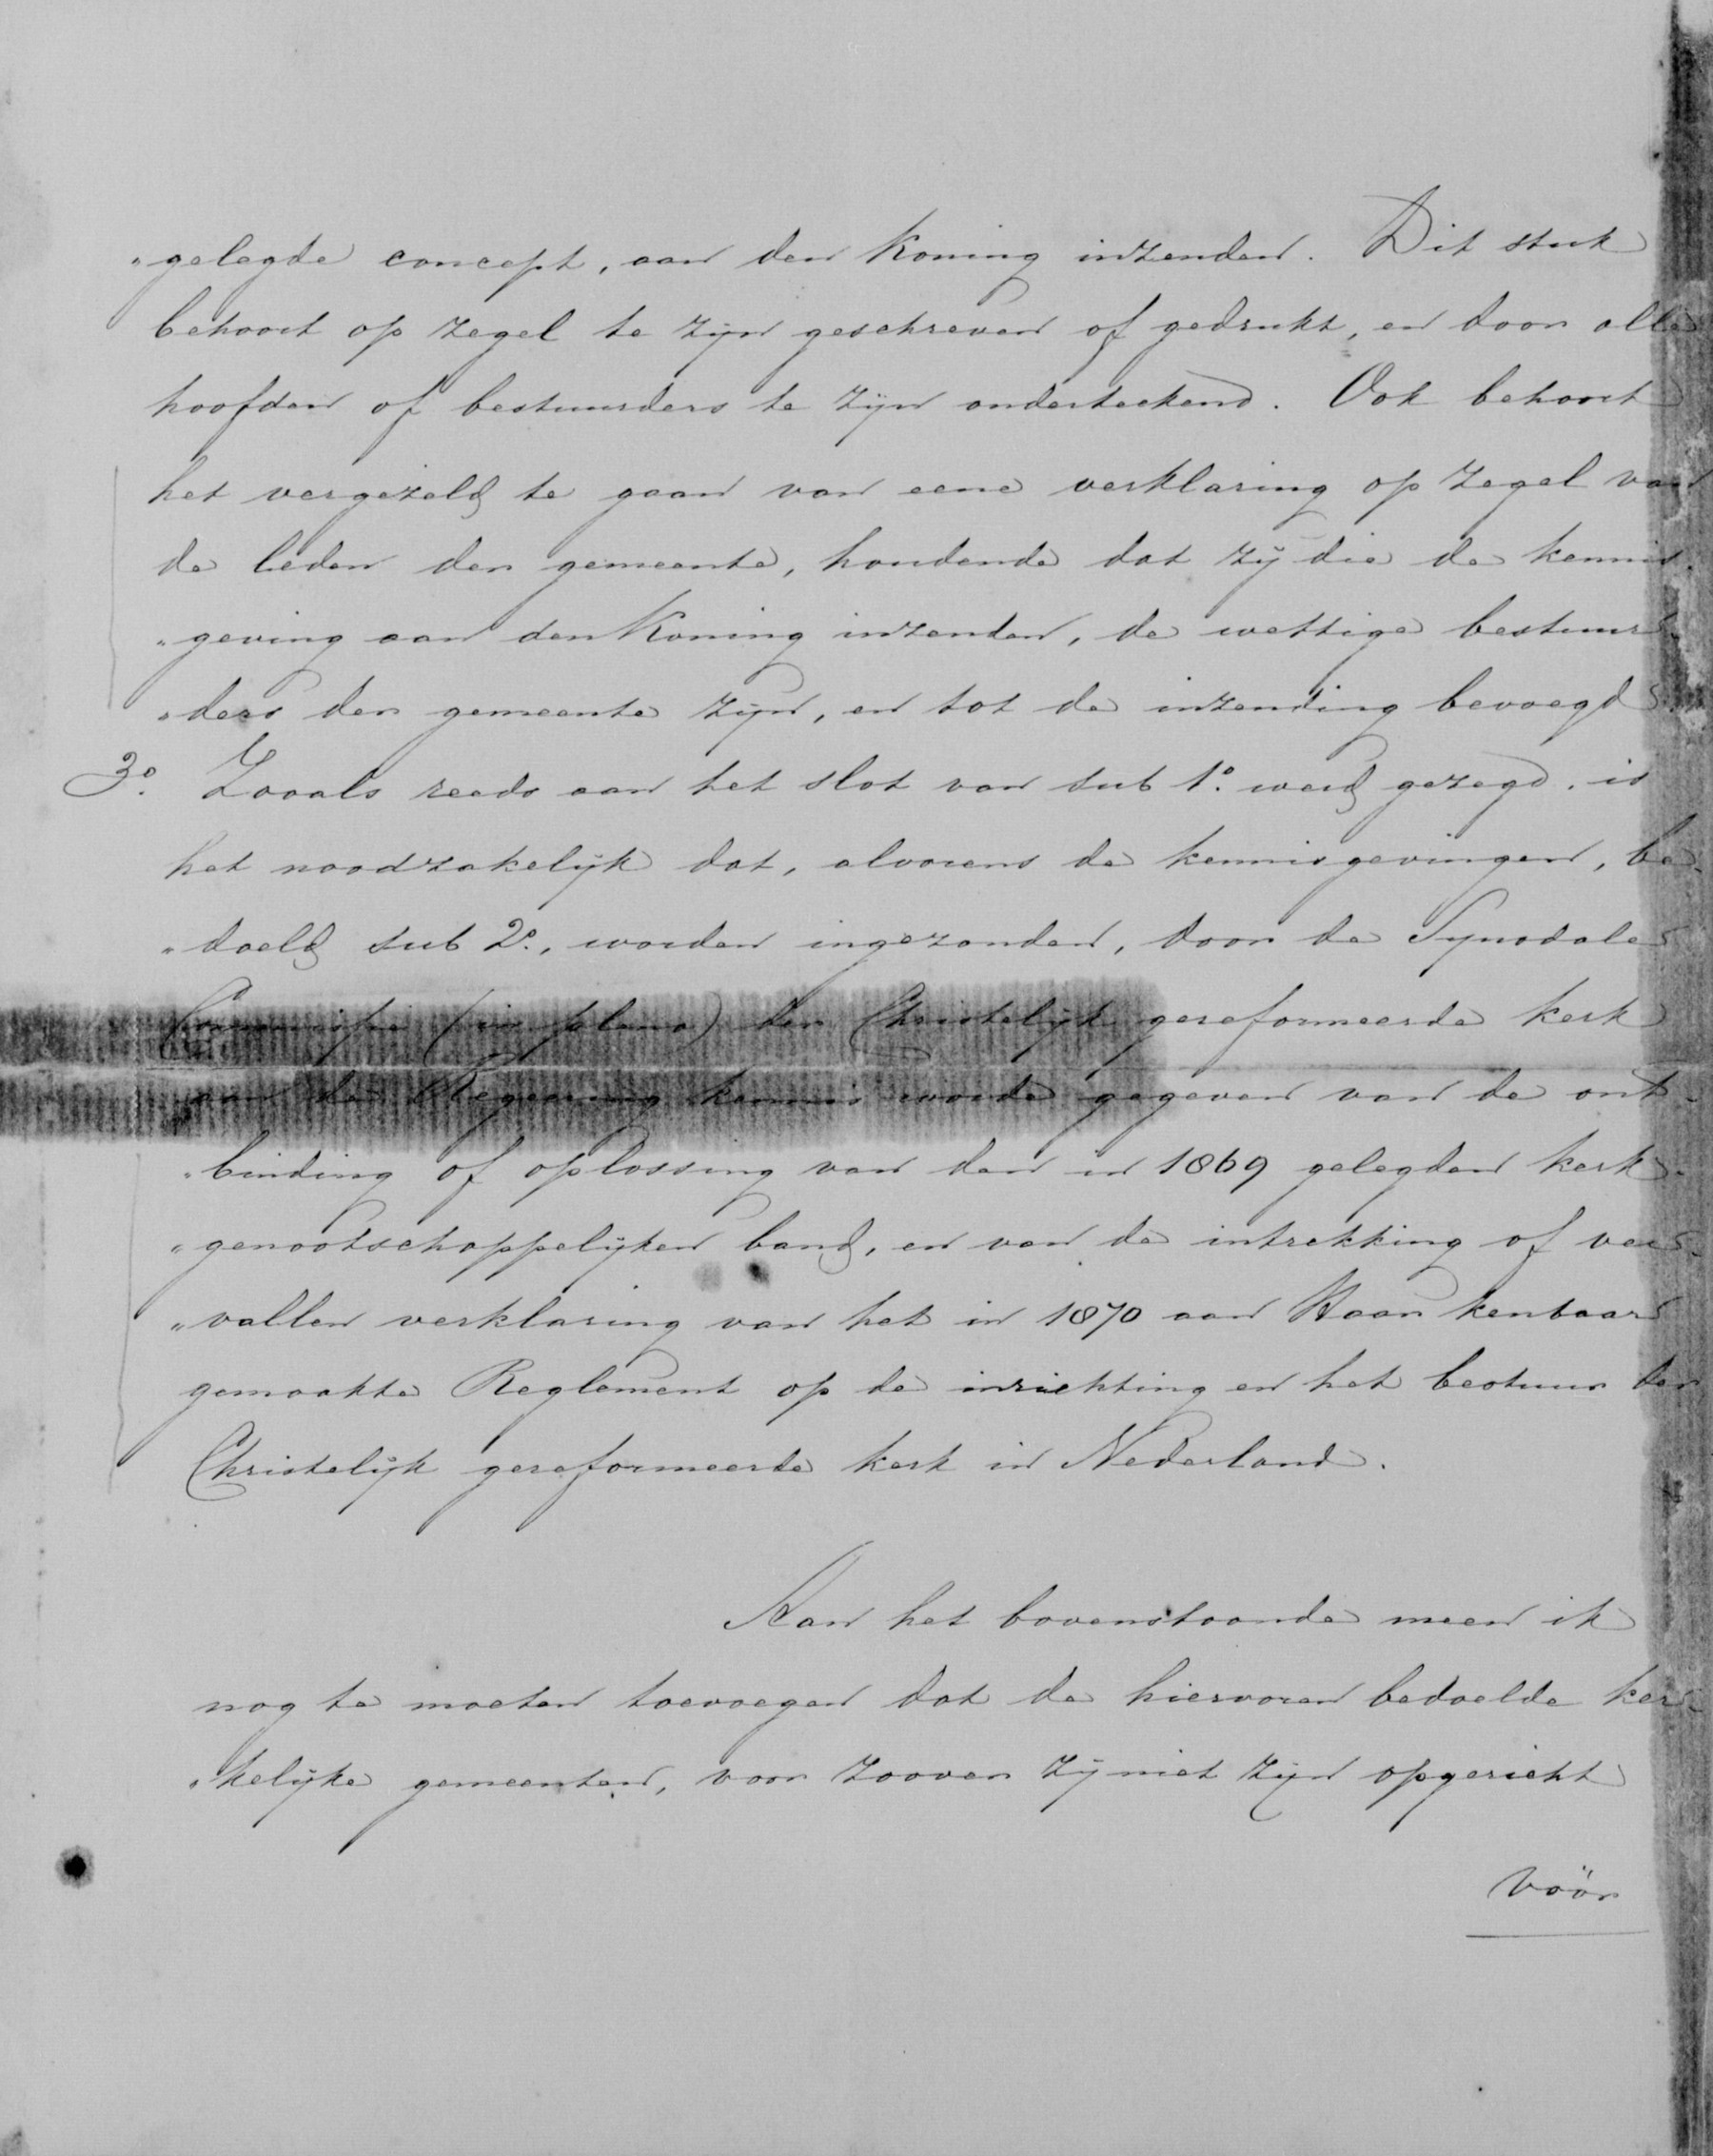 „gelegde concept, aan den Koning inzenden. Dit stuk
behoort op zegel te zijn geschreven of gedrukt, en door alle
hoofden of bestuurders te zijn onderteekend. Ook behoort
het vergezeld te gaan van eene verklaring op zegel van
de leden der gemeente, houdende dat zij die de kennis-
„geving aan den Koning inzenden, de wettige bestuur-
„ders der gemeente zijn, en tot de inzending bevoegd.
3o. Zooals reeds aan het slot van sub 1o. werd gezegd, is
het noodzakelijk dat, alvorens de kennisgevingen, be-
„doeld sub 2o., worden ingezonden, door de Synodale
Commissie (in pleno) der Christelijk gereformeerde kerk
aan de Regeering kennis worde gegeven van de ont-
„binding of oplossing van den in 1869 gelegden kerk-
„genootschappelijken band, en van de intrekking of ver-
„vallen verklaring van het in 1870 aan Haar kenbaar
gemaakte Reglement op de inrichting en het bestuur der
Christelijk gereformeerde kerk in Nederland.
Aan het bovenstaande meen ik
nog te moeten toevoegen dat de hiervoren bedoelde ker-
„kelijke gemeenten, voor zoover zij niet zijn opgericht
vóór